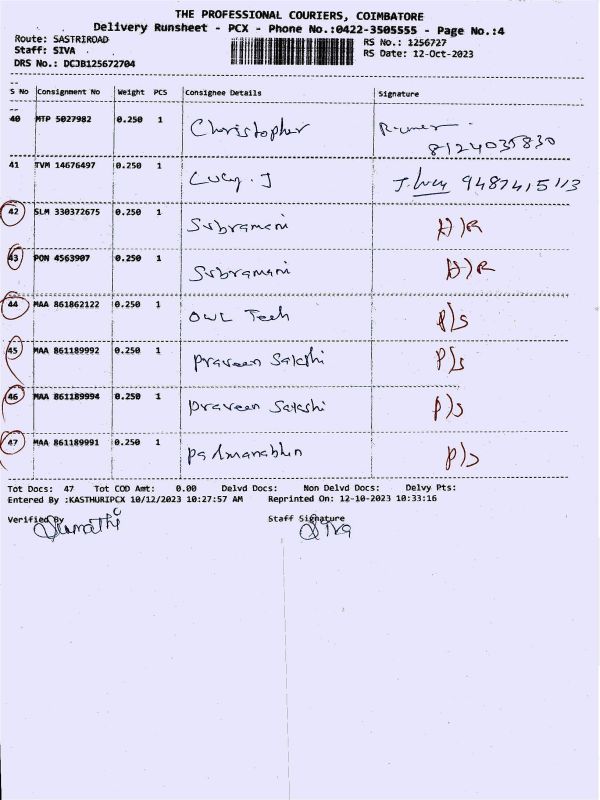 THE PROFESSIONAL COURIERS, COIMBATORE
Delivery Runsheet - PCX - Phone No.:0422-3505555 - Page No.:4
Route: SASTRIROAD
Staff: SIVA
DRS No.: DCJB125672704
RS No.: 1256727
RS Date: 12-Oct-2023
S No Consignment No Weight PCS Consignee Details Signature
40 MTP 5027982 0.250 1 Christopher
8124035830
41 TVM 14676497 0.250 1 Lucy. J J. Lucy 9487415113
42 SLM 330372675 0.250 1 Subramani A)R
43 PON 4563907 0.250 1 Subramani A)R
44 MAA 861862122 0.250 1 OWL Tech P)S
45 MAA 861189992 0.250 1 Praveen Sakshi P)S
46 MAA 861189994 0.250 1 Praveen Sakshi P)S
47 MAA 861189991 0.250 1 Padmanabhan P)S
Tot Docs: 47 Tot COD Amt: 0.00 Delvd Docs: Non Delvd Docs: Delvy Pts:
Entered By :KASTHURIPCX 10/12/2023 10:27:57 AM Reprinted On: 12-10-2023 10:33:16
Verified By Staff Signature
Siva